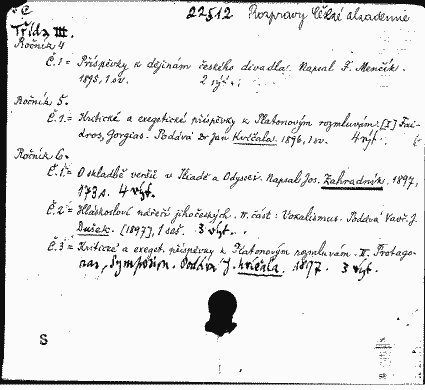 C 22512 Rozpravy České akademie
Třída III.
Ročník 4
Č. 1 = Příspěvky k dějinám českého divadla. Napsal F. Menčík.
1895, 1 sv. 2 výt.
Ročník 5.
Č. 1. = Kritické a exegetické příspěvky k Platonovým rozmluvám. [I] Fai-
dros, Gorgias. Podává Dr Jan Kvíčala. 1896, 1 sv. 4 výt.
Ročník 6.
Č. 1. = O skladbě veršů v Iliadě a Odyssei. Napsal Jos. Zahradník. 1897,
173 s. 4 výt.
Č. 2 = Hláskosloví nářečí jihočeských. II. část: Vokalismus. Podává Vavř. J.
Dušek. [1897], 1 seš. 3 výt.
Č. 3 = Kritické a exeget. příspěvky k Platonovým rozmluvám. II. Protago-
ras, Symposion. Podává J. Kvíčala. 1897. 3 výt.
S